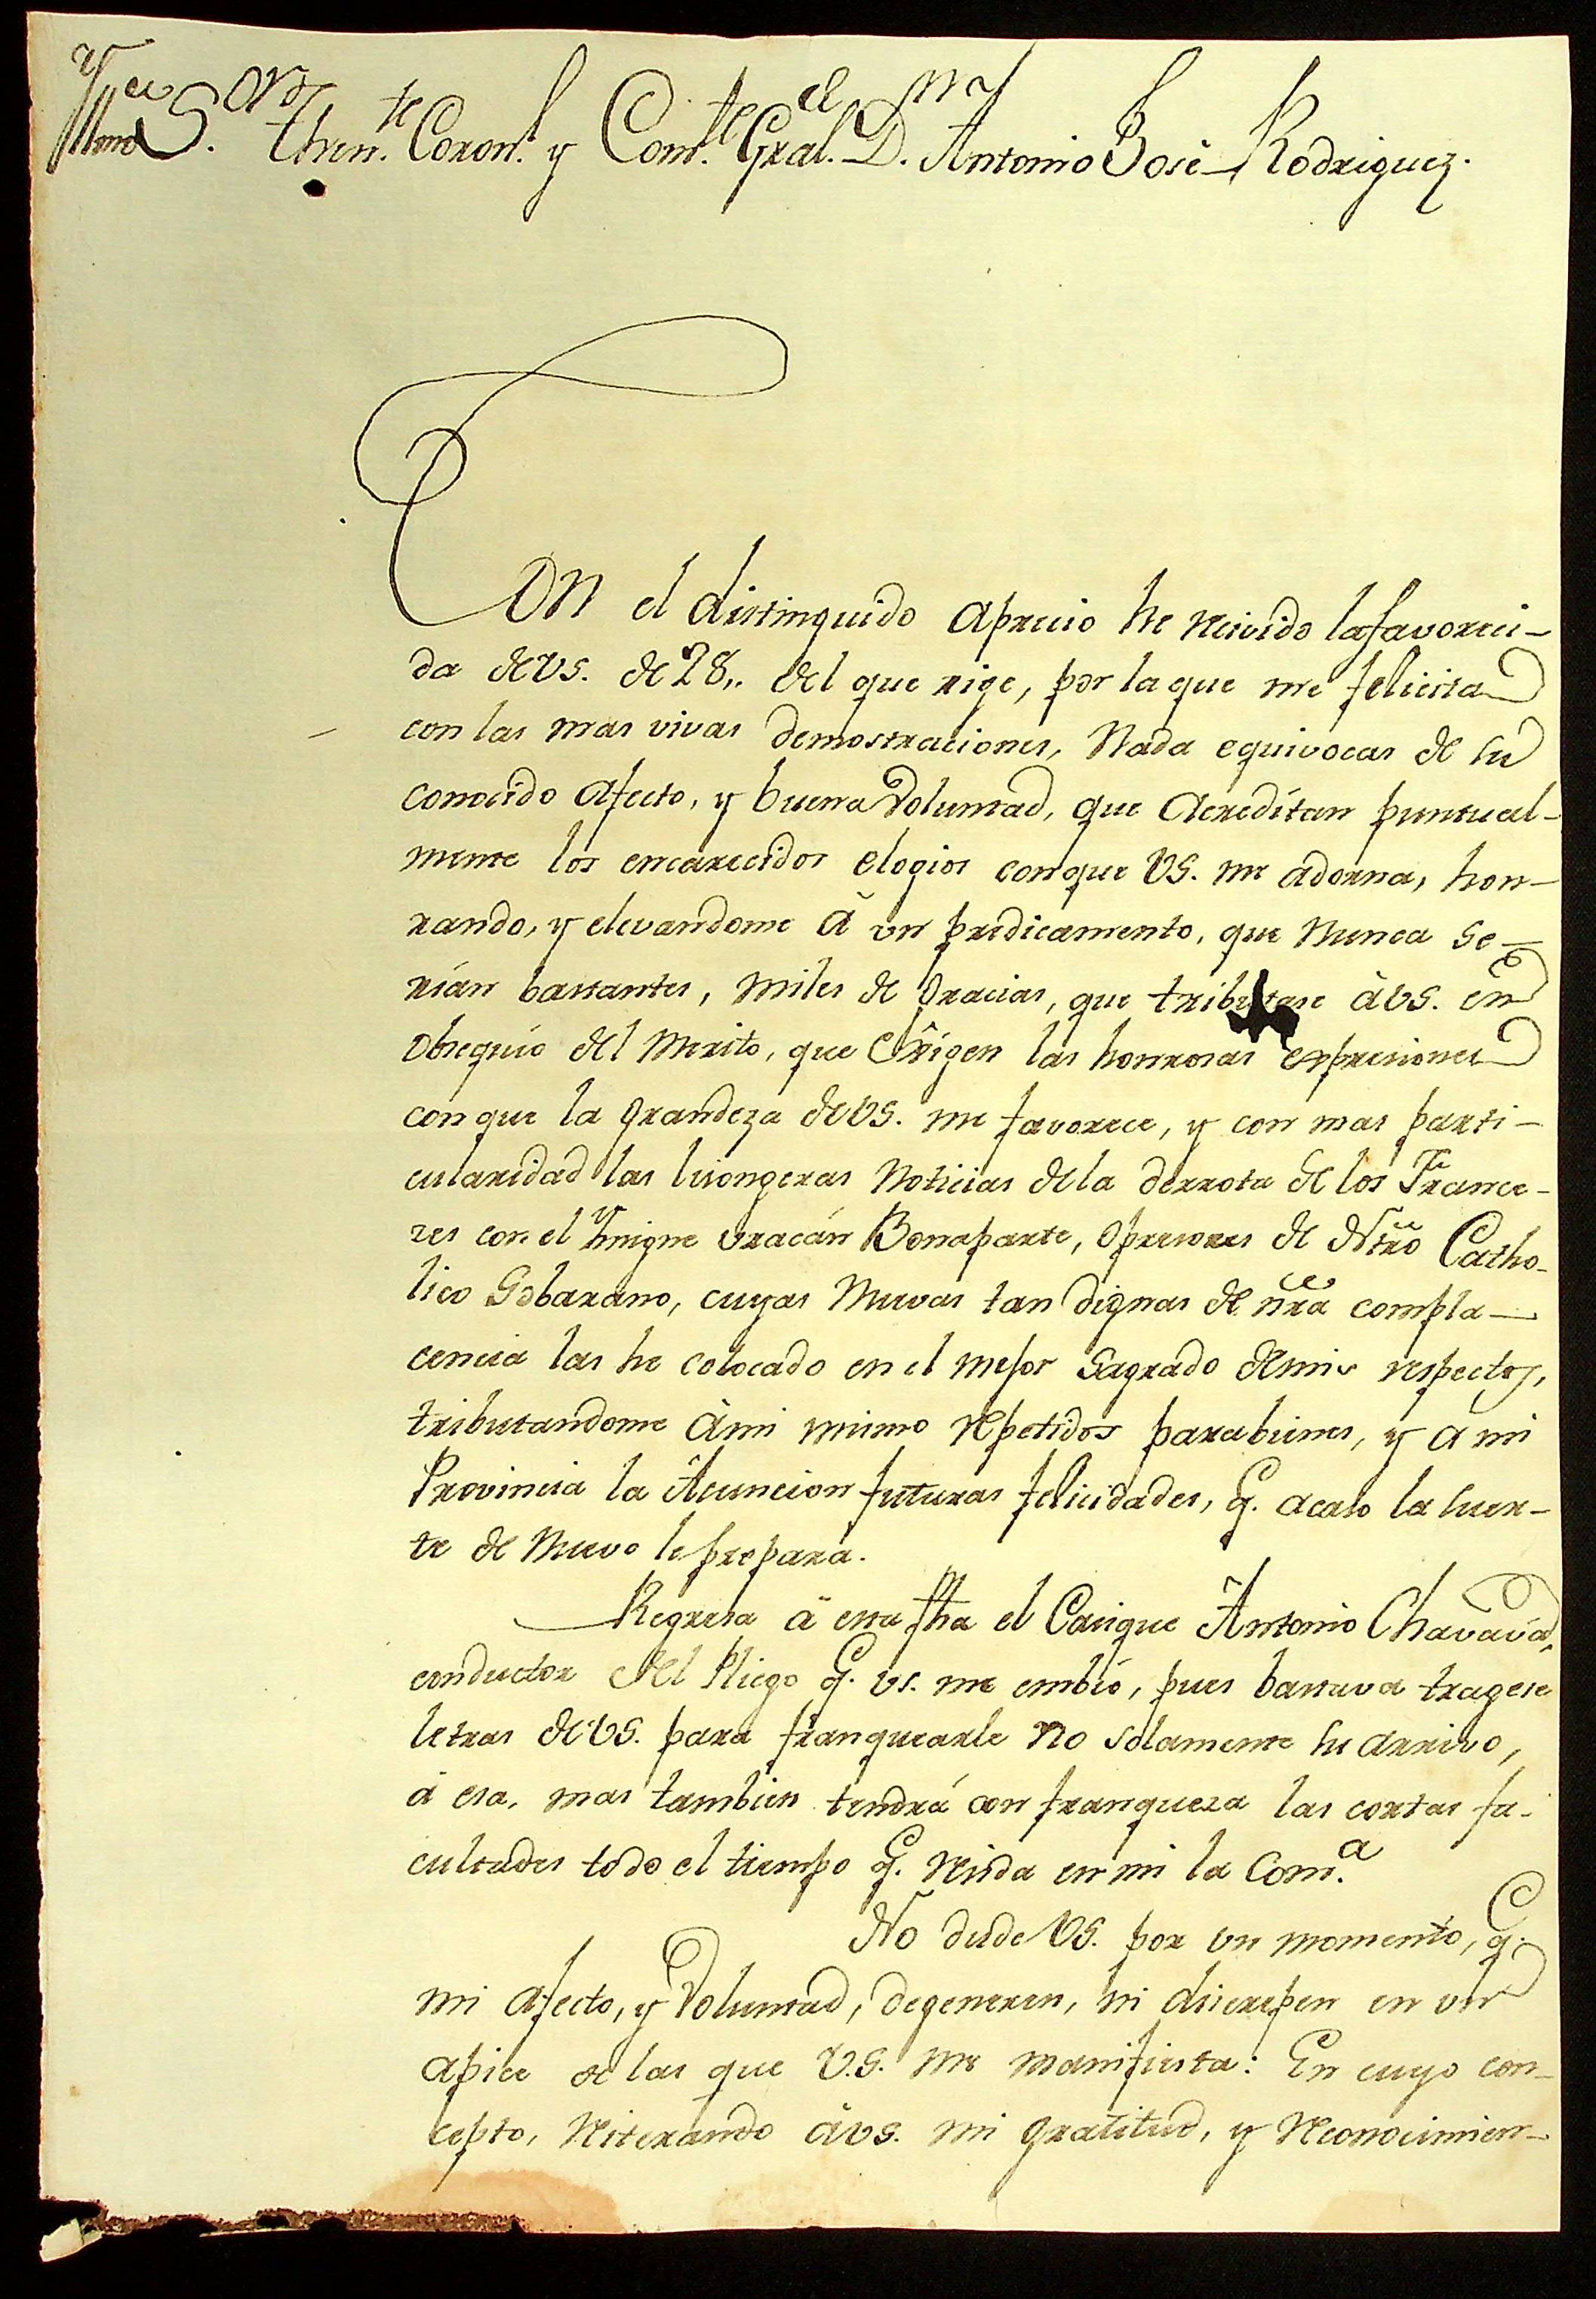 S.or then.te Coron.l y Com.te Gral. D. Antonio José Rodriguez.
CON el distinguido aprecio he recivido la favoreci-
da de VS. de 28,, del que rige, por la que me felicita
con las mas vivas demostraciones, Nada equivocas de su
conocido afecto, y buena Voluntad, que acreditan puntual-
mente los encarecidos elogios con que VS. me adorna, hon-
rando, y elevandome à un predicamento, que nunca se-
rían bastantes, miles de Gracias, que tributase à VS. en
obsequio del Merito, que Exîgen las honrosas expresiones
con que la grandeza de VS. me favorece, y con mas parti-
cularidad las lisongeras Noticias de la derrota de los France-
ses con el Ynigne uracán Bonaparte, opresores de Ntrõ Catho-
lico Sobarano, cuyas Nuevas tan dignas de nrã compla-
cencia las he colocado en el mejor Sagrado de mis respectos,
tributandome à mi mismo repetidos parabienes, y a mi
Provincia la Asuncion futuras felicidades, q. acaso la suer-
te de Nuevo le prepara.
Regresa à essa fha el Casique Antonio Chavavá,
conductor del Pliego q. vs. me embió, pues bastava tragese
letras de VS. para franquearle no solamente su arrivo,
á esa, mas tambien tendrá con franqueza las cortas fa-
cultades todo el tiempo q. resida en mi la Com.a
No dude VS. por un momento, q.
mi afecto, y Voluntad, degeneren, ni discrepen en un
apice de las que V.S. me manifiesta: En cuyo con-
cepto, reiterando à vs. mi gratitud, y reconocimien-